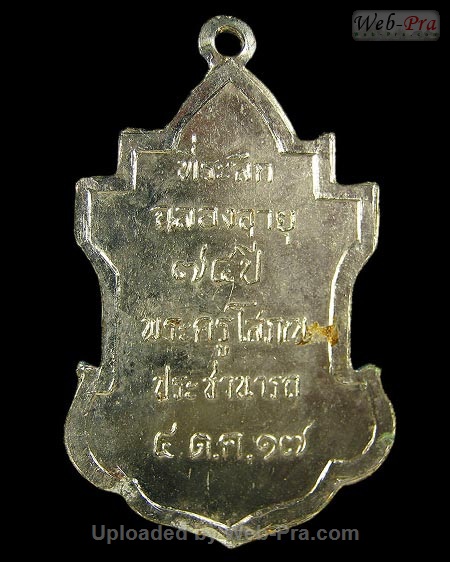 Web-Pra
Web-Pra.com
ที่ระลึก
ฉลองอายุ
๗๔ปี
พระครูโสภณ
ประชานารถ
๔ ต.ค.๑๗
Uploaded by Web-Pra.com